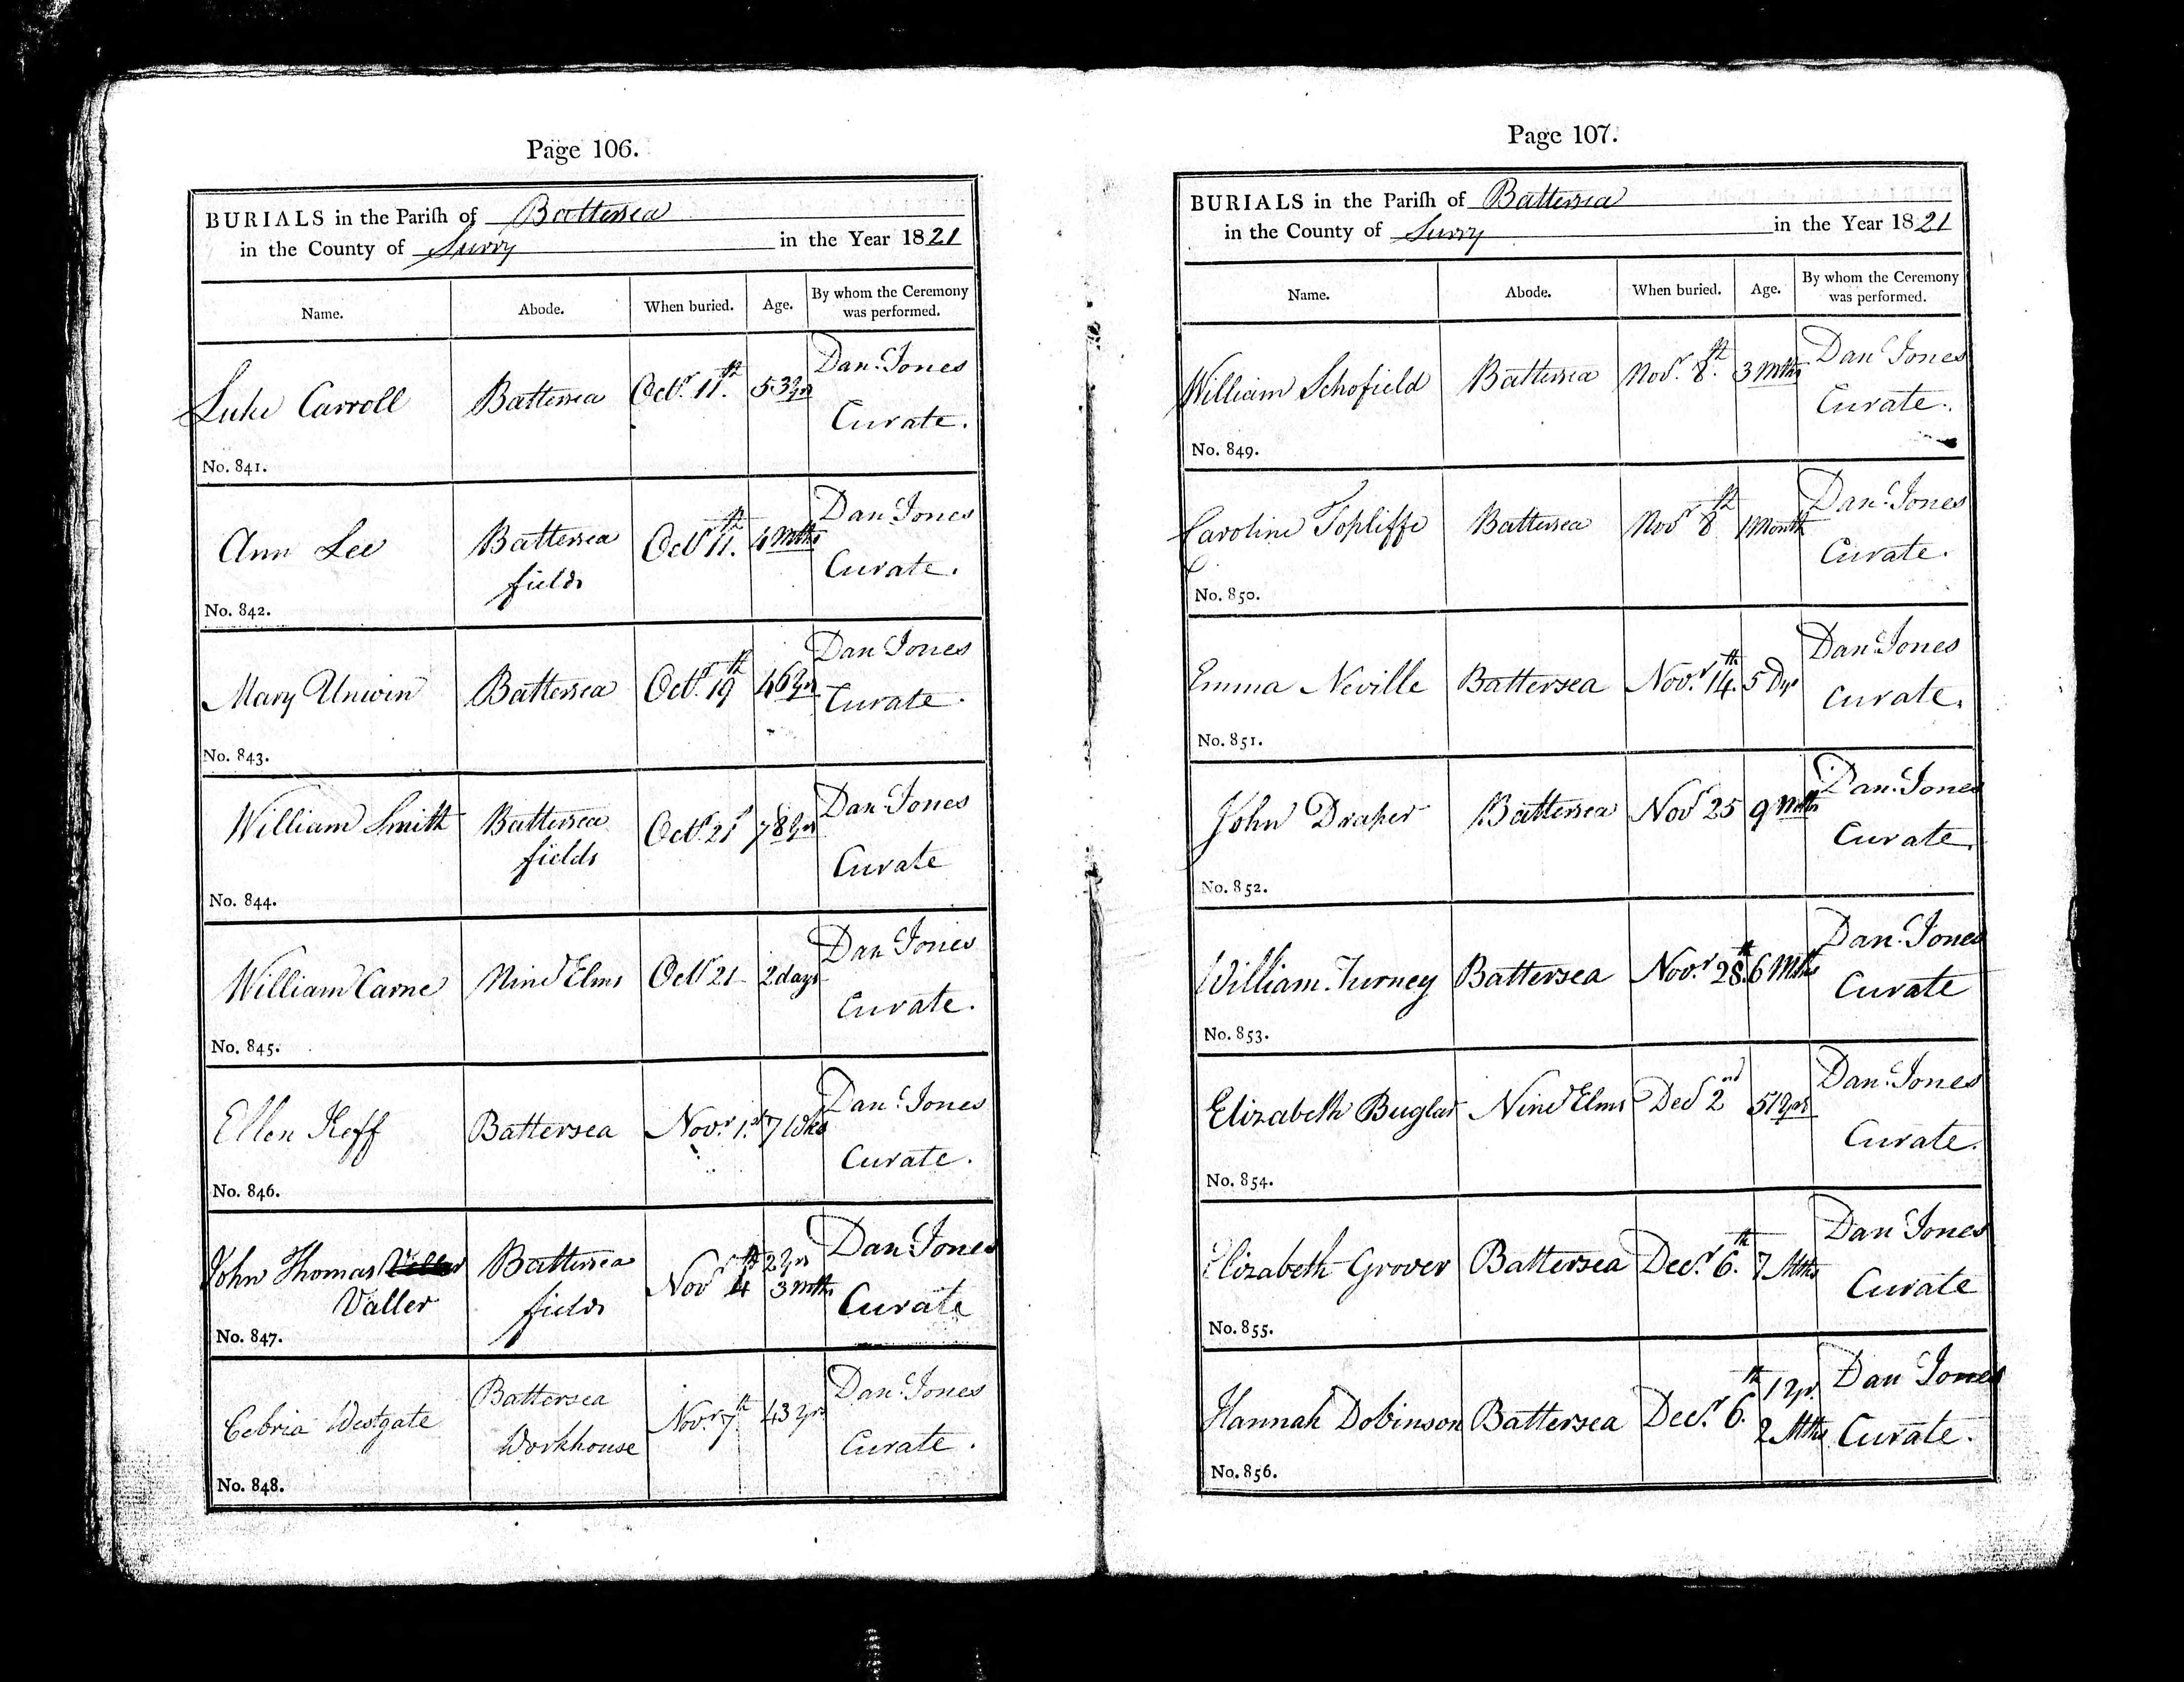 Page 106.
BURIALS in the Parish of Battersea
in the County of Surry in the Year 1821
Name. Abode. When buried. Age. By whom the Ceremony was performed.
Luke Carroll Battersea Octr. 11th. 53 yrs Danl. Jones
Curate.
No. 841.
Ann Lee Battersea Octr 11th. 4 Mths Danl. Jones
fields Curate.
No. 842.
Mary Unwin Battersea Octr. 19th 46 yrs Danl. Jones
Curate.
No. 843.
William Smith Battersea Octr. 21st 78 yrs Danl. Jones
fields Curate
No. 844.
William Carne Nine Elms Octr 21 2 days Danl. Jones
Curate.
No. 845.
Ellen Keff Battersea Novr. 1.st 7 Wks Danl. Jones
Curate.
No. 846.
John Thomas Battersea Novr 4th 2 yrs Danl. Jones
Valler fields 3 mths Curate
No. 847.
Cebria Westgate Battersea Novr. 7th. 43 yrs Danl. Jones
Workhouse Curate.
No. 848.
Page 107.
BURIALS in the Parish of Battersea
in the County of Surry in the Year 1821
Name. Abode. When buried. Age. By whom the Ceremony was performed.
William Schofield Battersea Novr. 8th. 3 Mths Danl. Jones
Curate.
No. 849.
Caroline Topliffe Battersea Novr 8th 1 Month Danl. Jones
Curate.
No. 850.
Emma Neville Battersea Novr. 14th. 5 Dys Danl. Jones
Curate.
No. 851.
John Draper Battersea Novr 25 9 Mths Danl. Jones
Curate.
No. 852.
William Turney Battersea Novr. 28th. 6 Mths Danl. Jones
Curate
No. 853.
Elizabeth Buglar Nine Elms Decr 2nd 51 yrs Danl. Jones
Curate.
No. 854.
Elizabeth Grover Battersea Decr. 6th. 7 Mths Danl. Jones
Curate
No. 855.
Hannah Dobinson Battersea Decr. 6th. 1 yr. Danl. Jones
2 Mths Curate.
No. 856.